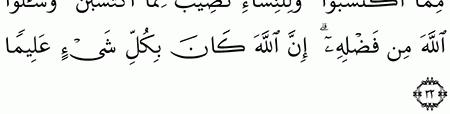 مِّمَّا ٱكۡتَسَبُواْۖ وَلِلنِّسَآءِ نَصِيبٞ مِّمَّا ٱكۡتَسَبۡنَۚ وَسۡـَٔلُواْ
ٱللَّهَ مِن فَضۡلِهِۦٓۗ إِنَّ ٱللَّهَ كَانَ بِكُلِّ شَيۡءٍ عَلِيمٗا
٣٢